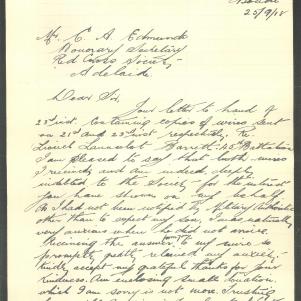 25/9/18
Mr. C. A. Edmunds
Honorary Secretary
Red Cross Society
Adelaide
Dear Sir
Your letter to hand of
23rd inst. containing copies of wires sent
on 21st and 23rd inst respectively. Re
Lionel Launcelot Barrett
I am pleased to say that both wires
I received and am indeed deeply
indebted to the Society for the interest
you have shown on my behalf
As I had not been notified by Military Authorities
other than to expect my son, I was naturally
very anxious when he did not arrive.
Receiving the answer to my wire so
promptly greatly relieved my anxiety
kindly accept my grateful thanks for your
kindness. Am enclosing small donation
which I am sorry is not more. Trusting